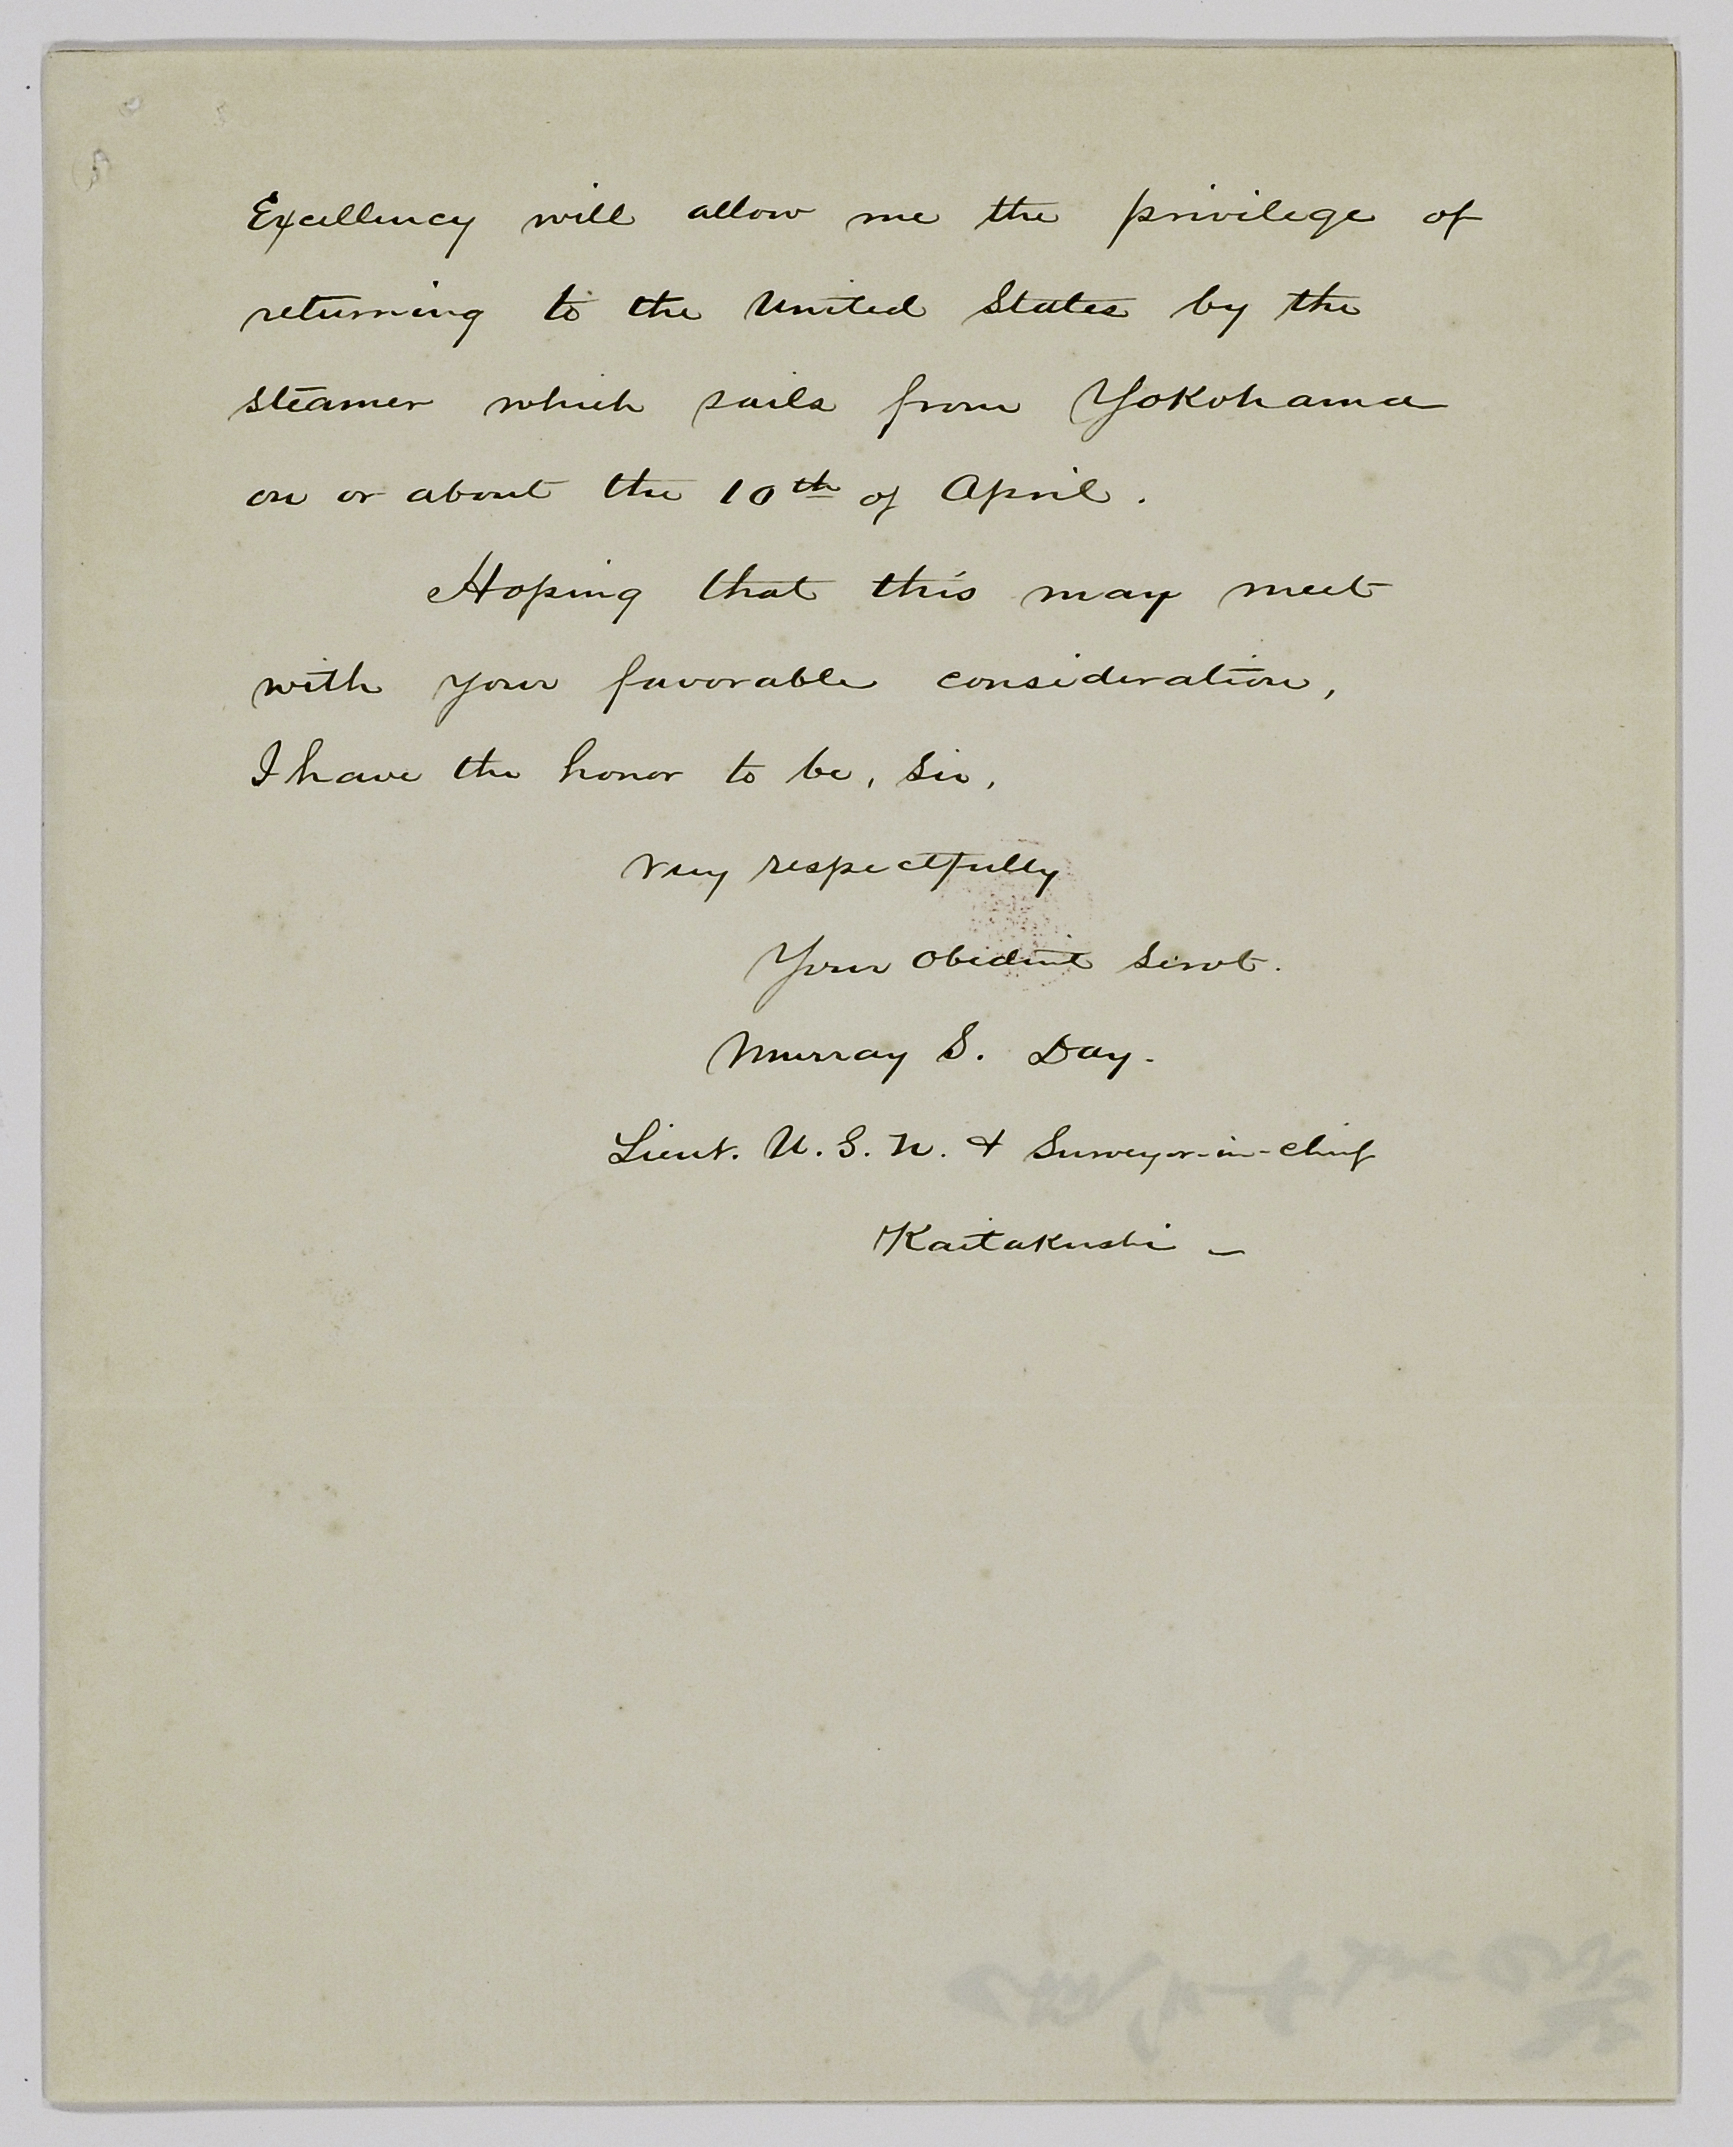 Excellency will allow me the privilege of
returning to the United States by the
steamer which sails from Yokohama
on or about the 10th of April.
Hoping that this may meet
with your favorable consideration,
I have the honor to be, Sir,
very respectfully
Your obedient servt.
Murray S. Day.
Lieut. U. S. N. & Surveyor-in-chief
Kaitakushi –